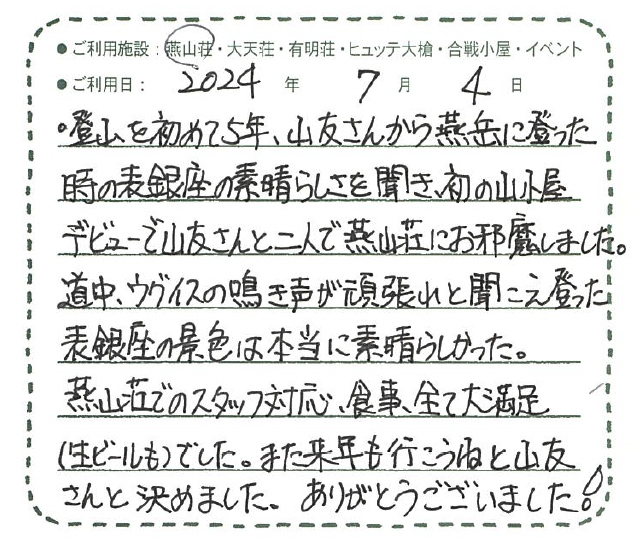 ●ご利用施設：燕山荘・大天荘・有明荘・ヒュッテ大槍・合戦小屋・イベント
●ご利用日： 2024 年 7 月 4 日
・登山を初めて5年、山友さんから燕岳に登った
時の表銀座の素晴らしさを聞き、初の山小屋
デビューで山友さんと二人で燕山荘にお邪魔しました。
道中、ウグイスの鳴き声が頑張れと聞こえ登った
表銀座の景色は本当に素晴らしかった。
燕山荘でのスタッフ対応、食事、全て大満足
(生ビールも)でした。また来年も行こうねと山友
さんと決めました。ありがとうございました!